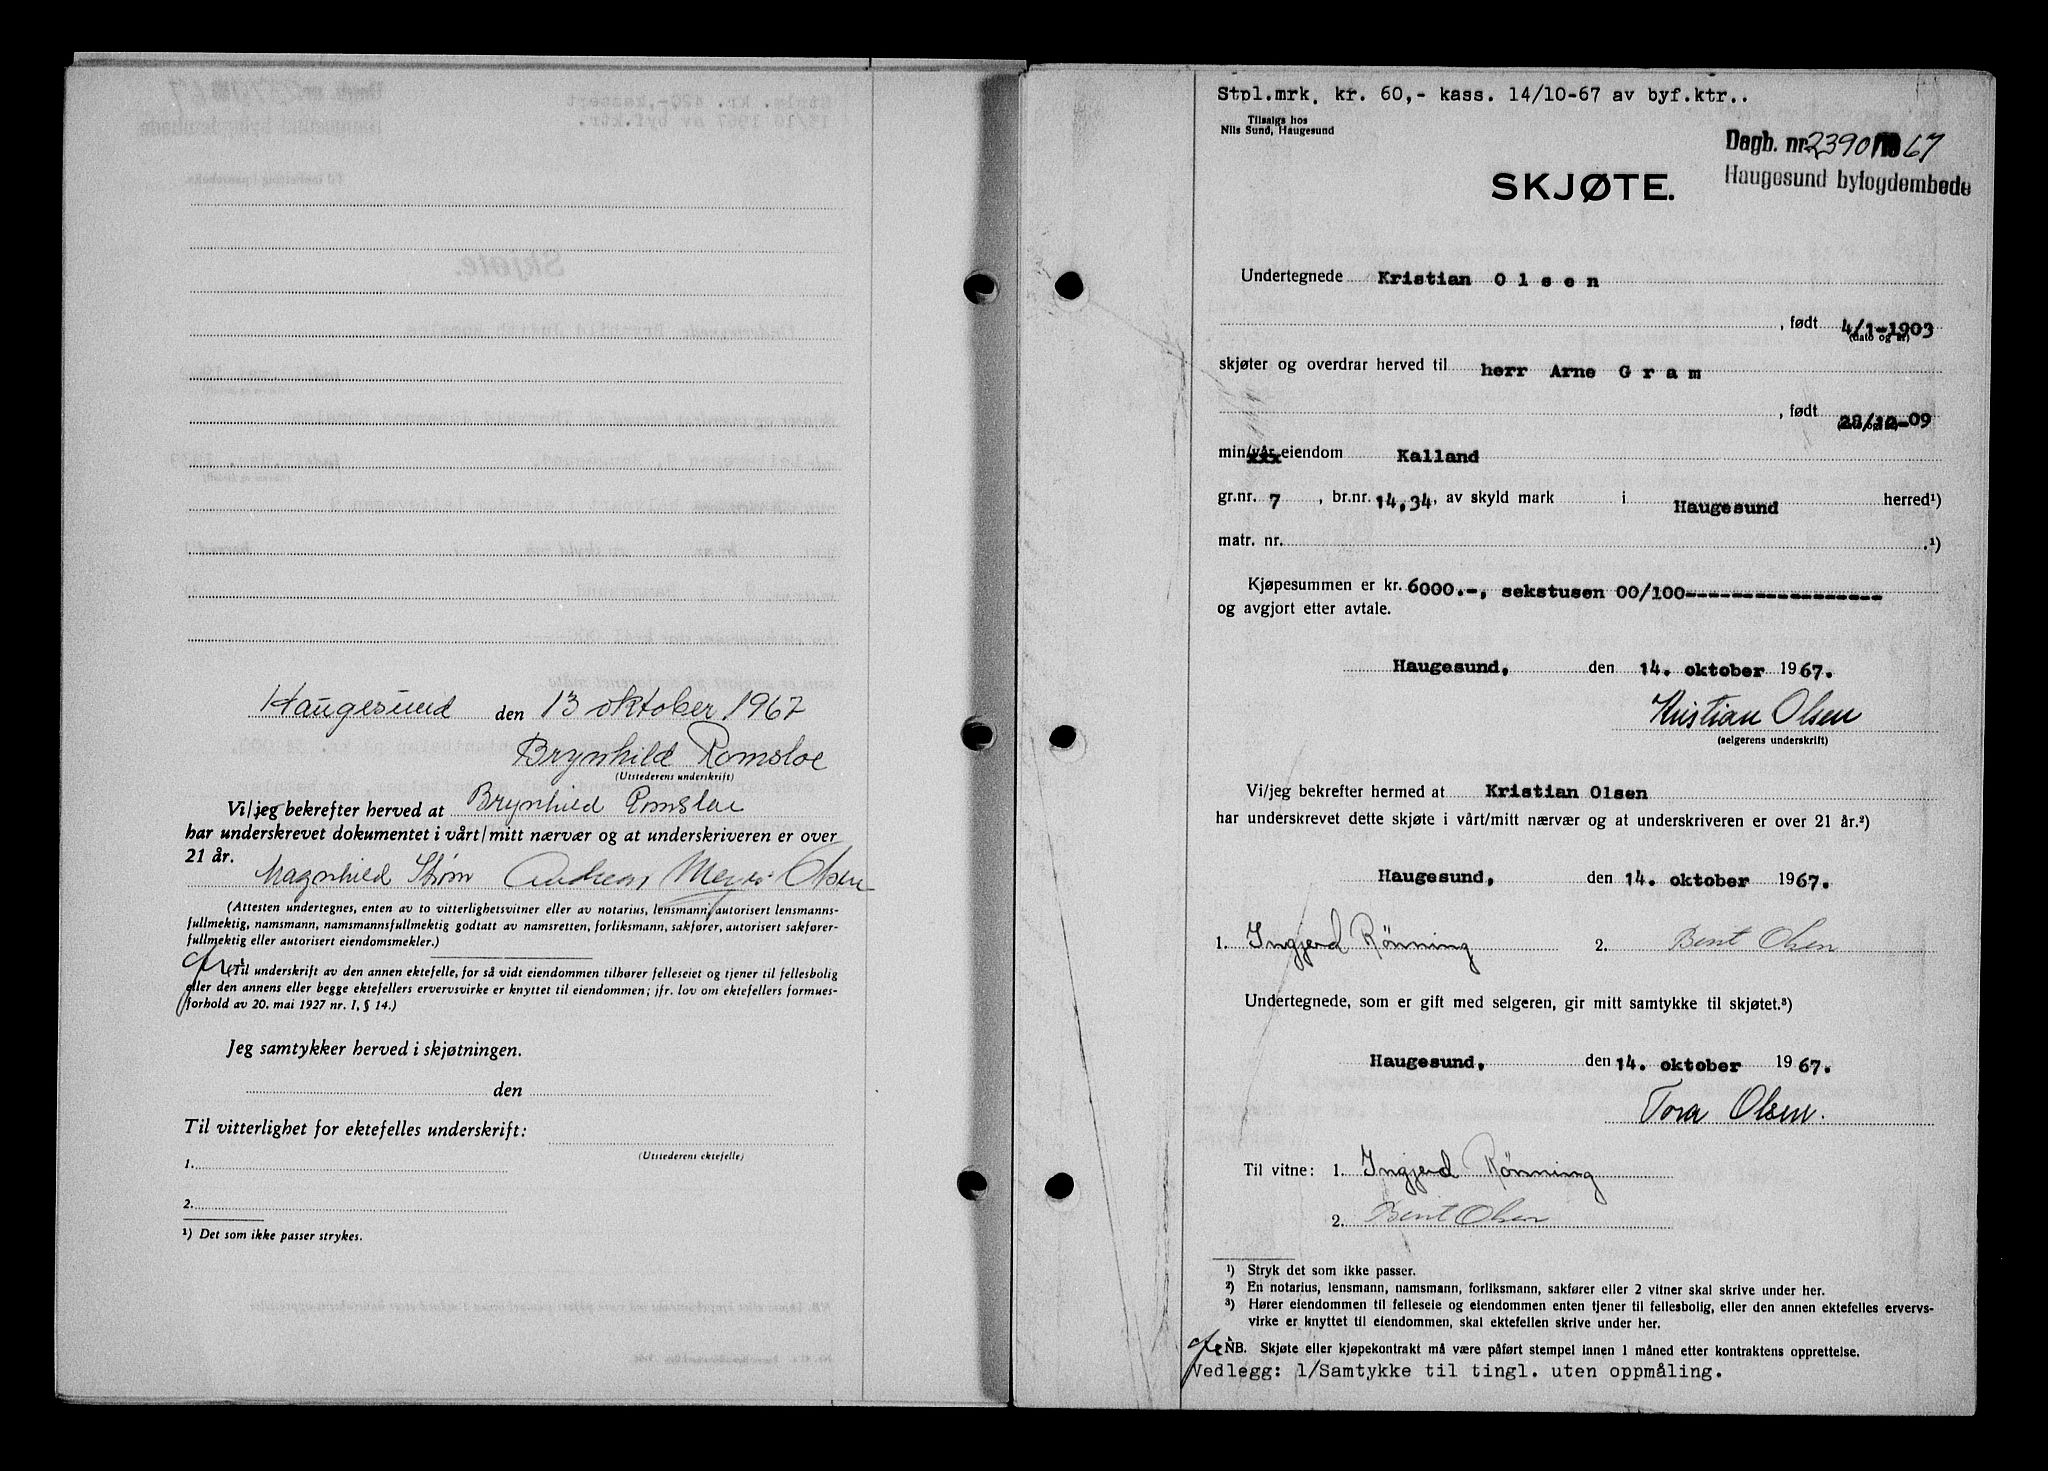 Haugesund den 13 oktober 1967
Brynhild Romsloe
(Utstederens underskrift)
Vi/jeg bekrefter herved at Brynhild Romsloe
har underskrevet dokumentet i vårt/mitt nærvær og at underskriveren er over
21 år.
Magnhild Strøm Andreas Meyer Olsen
(Attesten undertegnes, enten av to vitterlighetsvitner eller av notarius, lensmann, autorisert lensmanns-
fullmektig, namsmann, namsmannsfullmektig godtatt av namsretten, forliksmann, sakfører, autorisert sakfører-
fullmektig eller autorisert eiendomsmekler.)
(Til underskrift av den annen ektefelle, for så vidt eiendommen tilhører felleseiet og tjener til fellesbolig
eller den annens eller begge ektefellers ervervsvirke er knyttet til eiendommen; jfr. lov om ektefellers formues-
forhold av 20. mai 1927 nr. 1, § 14.)
Jeg samtykker herved i skjøtningen.
den
Til vitterlighet for ektefelles underskrift:
(Utstederens ektefelle)
1.
2.
¹) Det som ikke passer strykes.
Stpl.mrk. kr. 60,- kass. 14/10-67 av byf.ktr..
Tilsalgs hos
Nils Sund, Haugesund
Dagb. nr. 2390/1967
Haugesund byfogdembede
SKJØTE.
Undertegnede Kristian Olsen
, født 4/1-1903
(dato og år)
skjøter og overdrar herved til herr Arne Gram
, født 28/12-09
(dato og år)
min/vår eiendom Kalland
gr.nr. 7 , br.nr. 14,34, av skyld mark i Haugesund herred¹)
matr. nr. .¹)
Kjøpesummen er kr. 6000.-, sekstusen 00/100------------------
og avgjort etter avtale.
Haugesund, den 14. oktober 1967.
Kristian Olsen
(selgerens underskrift)
Vi/jeg bekrefter hermed at Kristian Olsen
har underskrevet dette skjøte i vårt/mitt nærvær og at underskriveren er over 21 år.²)
Haugesund, den 14. oktober 1967.
1. Ingjerd Rønning 2. Bent Olsen
Undertegnede, som er gift med selgeren, gir mitt samtykke til skjøtet.³)
Haugesund, den 14. oktober 1967.
Tora Olsen.
Til vitne: 1. Ingjerd Rønning
2. Bent Olsen
¹) Stryk det som ikke passer.
²) En notarius, lensmann, namsmann, forliksmann, sakfører eller 2 vitner skal skrive under her.
³) Hører eiendommen til felleseie og eiendommen enten tjener til fellesbolig, eller den annen ektefelles ervervs-
virke er knyttet til eiendommen, skal ektefellen skrive under her.
NB. Skjøte eller kjøpekontrakt må være påført stempel innen 1 måned etter kontraktens opprettelse.
Vedlegg: 1/Samtykke til tingl. uten oppmåling.